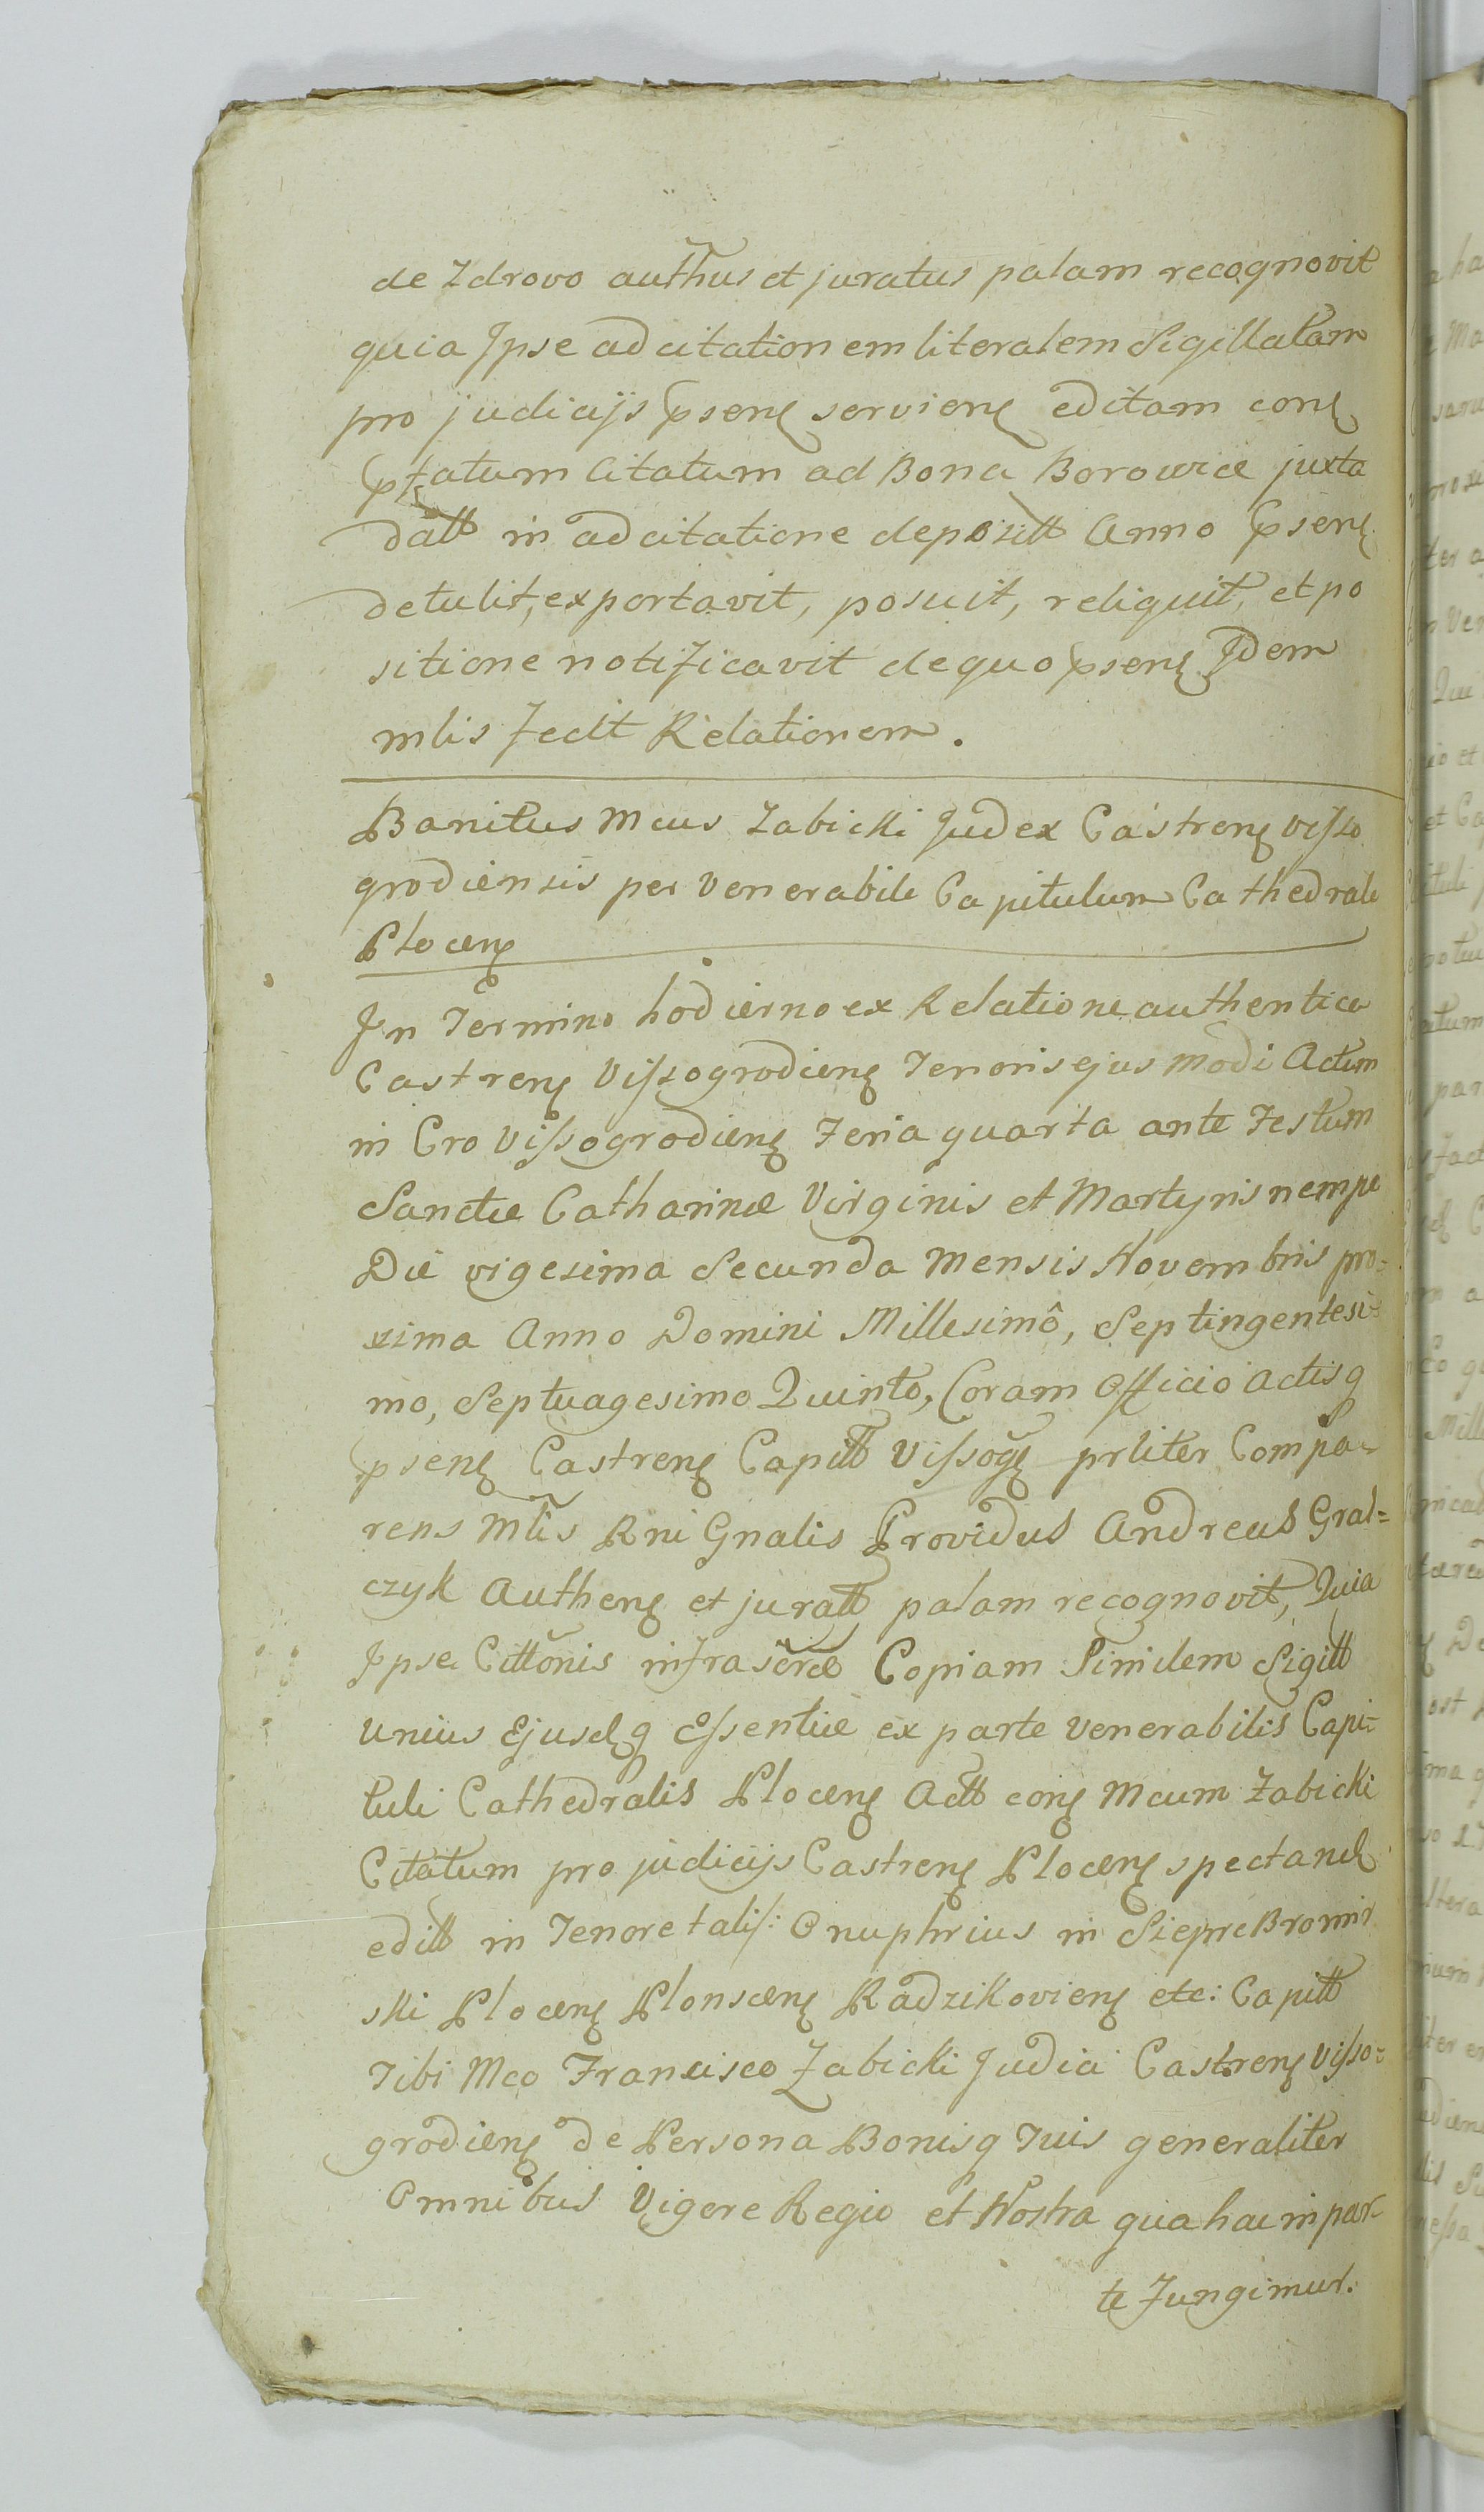 de Zdrovo auth̃us et juratus palam recognovit
quia Ipse adcitationem literalem Sigillatam
pro judicijs pṣenꝭ servienꝭ editam conꝭ
p̱fatum Citatum ad Bona Borowice juxta
datt in adcitatione depositt Anno pṣenꝭ
detulit, exportavit, posuit, reliquit, et po
sitione notificavit de quo pṣenꝭ Idem
mlis fecit Relationem.
Banitus Mcus Zabicki Judex Castrenꝭ Visso
grodiensis per Venerabile Capitulum Cathedrale
Plocenꝭ
In Termino hodierno ex Relatione authentica
Castrenꝭ Vissogrodienꝭ Tenoris ejusmodi Actum
in Cro Vissogrodienꝭ Feria quarta ante Festum
Sanctæ Catharinæ Virginis et Martyris nempe
Die vigesima Secunda Mensis Novembris pro=
xima Anno Domini Millesimô, Septingentesi=
mo, Septuagesimo Quinto, Coram Officio Actisq
pṣenꝭ Castrenꝭ Capitt Vissogꝭ prliter Compa=
rens Mlĩs Rni Gnalis Providus Andreas Gral=
czyk Authenꝭ et juratt palam recognovit, Quia
Ipse Cittõnis infrascrõæ Copiam Similem Sigitt
unius Ejusdꝭq Essentiæ ex parte Venerabilis Capi=
tuli Cathedralis Plocenꝭ Actt conꝭ Mcum Zabicki
Citatum pro judicijs Castrenꝭ Plocenꝭ spectandꝭ
editt in Tenore talis: Onuphrius in Siepre Bromir
ski Plocenꝭ Plonscenꝭ Radzikovienꝭ etc: Capitt
Tibi Mco Francisco Zabicki Judici Castrenꝭ Visso=
grodienꝭ de Persona Bonisq Tuis generaliter
Omnibus Vigore Regio et Nostra qua hac in par=
te Fungimur.